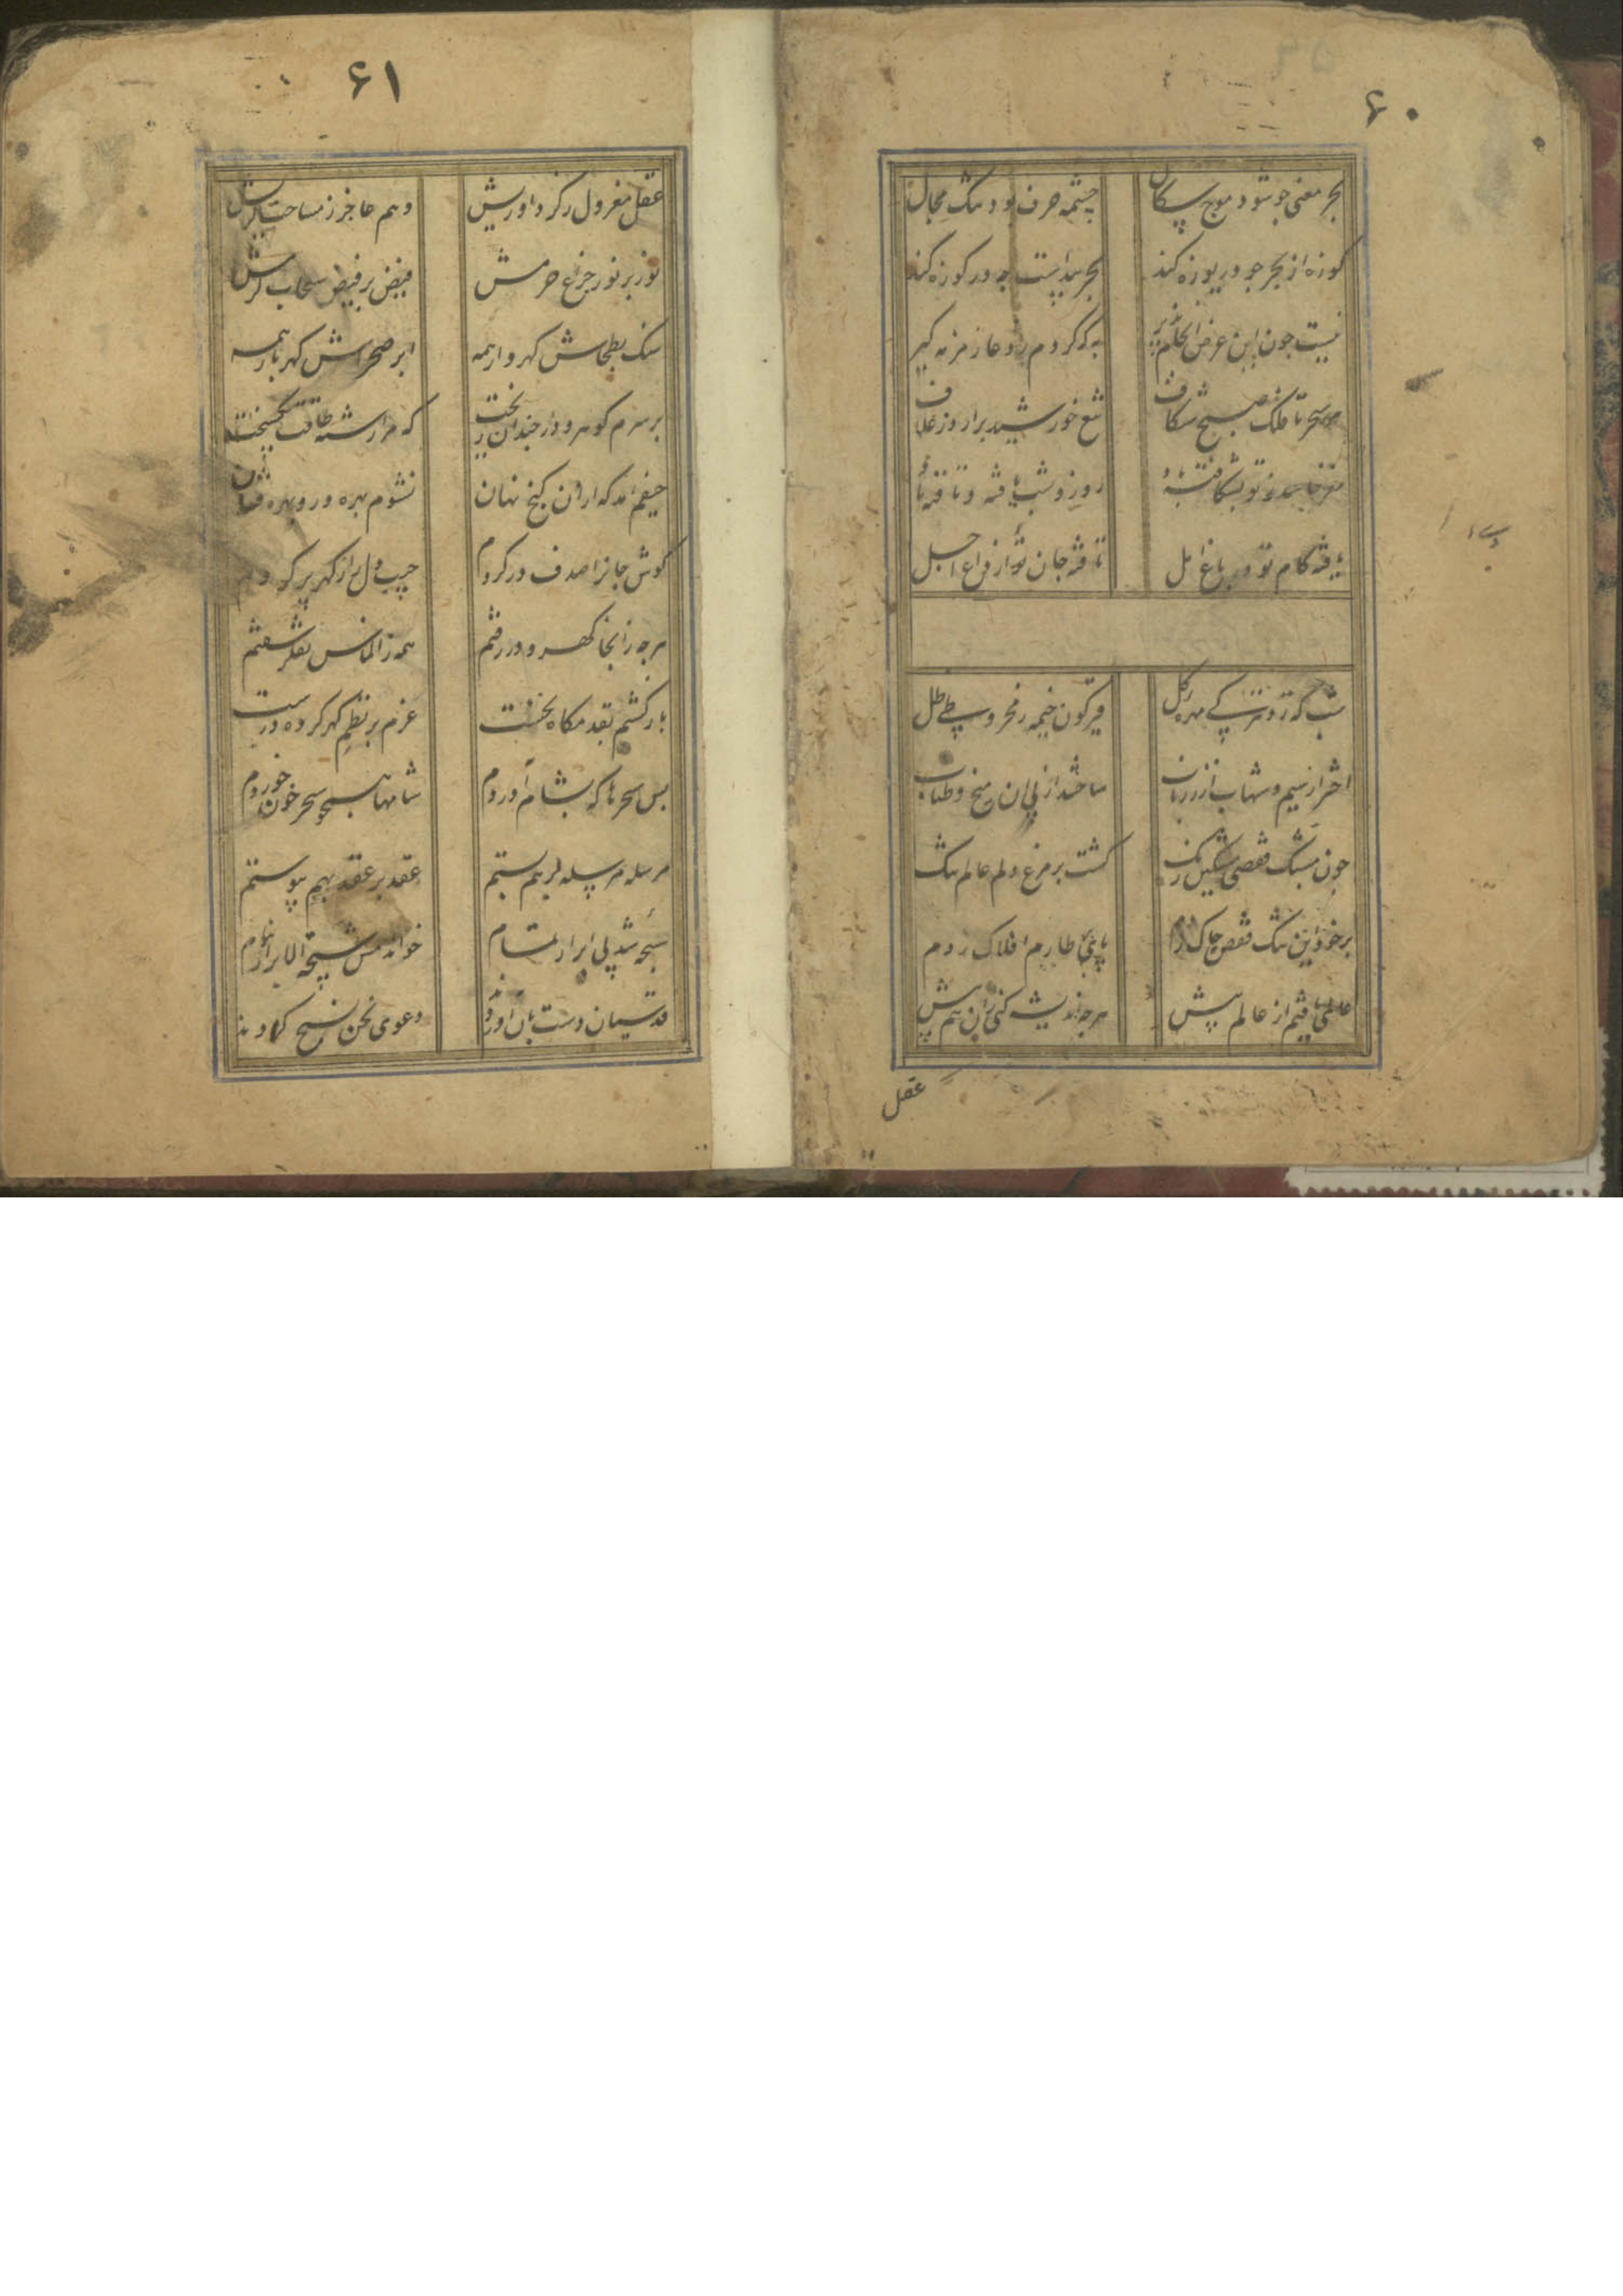 ۶۰
بحر معنی چو شود موج سکال چشمه حرف بود تنک مجال
کوزه از بحر چو دریوزه کند بحر پیداست چه در کوزه کند
نیست چون این غرض انجام پذیر به که کردم ز دعا زمزمه کیر
هر سحر تا فلک صبح شکاف تیغ خورشید برارد ز غلاف
روز و شب یافته و تافته باد
یافته کام تو در باغ امل تافته جان تو از داغ اجل
شب که زد ترک مهره کل قیرکون خیمه مخروطی ظل
اختر از سیم و شهاب از زر ناب ساختند از پی آن میخ و طناب
چون مشبک قفصی مشکین رنک کشت بر مرغ دلم عالم تنک
بر خود این تنک قفص چاک زدم پای بر طارم افلاک زدم
عالمی یافتم از عالم پیش هر چه اندیشه کنی زان هم پیش
عقل
۶۱
عقل معزول ز کرد آوریش وهم عاجز ز مساحت کریش
نور بر نور چراغ حرمش فیض بر فیض سحاب کرمش
سنک بطحاش کهروار همه ابر صحراش کهربار همه
بر سرم کوهر و در چندان ریخت که مرا رشته طاقت بکسیخت
حیفم آمد که از آن کنج نهان نشوم بهره ور و بهره فشان
کوش جان را صدف در کردم جیب دل را ز کهر پر کردم
هر چه ز انجا کهر و در رفتم همه ز الماس تفکر سفتم
باز کشتم بقدمکاه نخست عزم بر نظم کهر کرده درست
بس سحرها که بشام آوردم شامها همچو سحر خون خوردم
مرسله مرسله بر هم بستم عقد بر عقد بهم پیوستم
سبحه شد پی ابرار تمام خواندمش سبحة الابرار بنام
قدسیان دست بآن آوردند دعوی نحن نسبح کردند